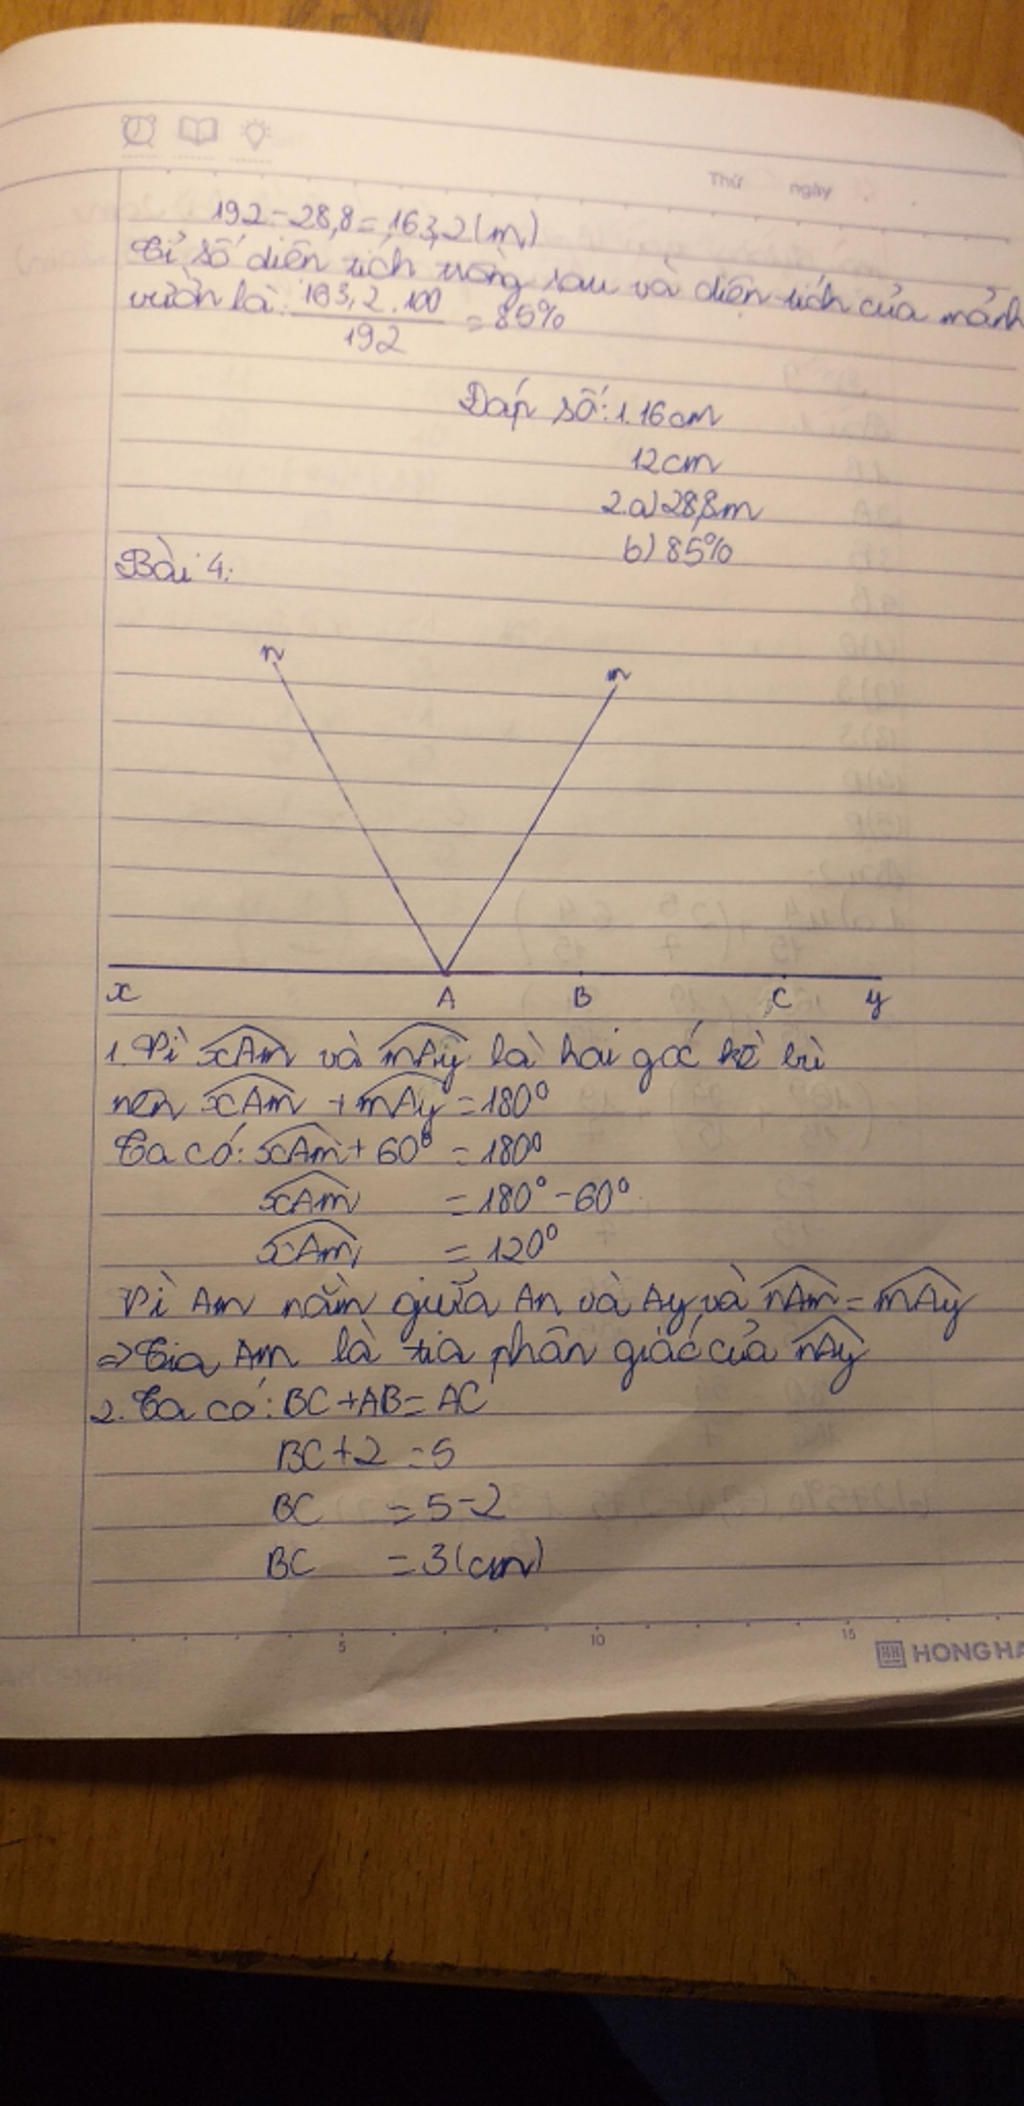 Thứ ngày
192-28,8=163,2(m)
Tỉ số diện tích trồng sau và diện tích của mảnh
vườn là: 163,2.100/192 = 85%
Đáp số: 1. 16cm
12cm
2.a) 28,8m
b) 85%
Bài 4:
n m
x A B C y
1. Vì xAm và mAy là hai góc kề bù
nên xAm + mAy = 180°
Ta có: xAm + 60° = 180°
xAm = 180° - 60°
xAm = 120°
Vì Am nằm giữa An và Ay và nAm = mAy
=> Tia Am là tia phân giác của nAy
2. Ta có: BC + AB = AC
BC + 2 = 5
BC = 5 - 2
BC = 3 (cm)
5 10 15
HONG HA